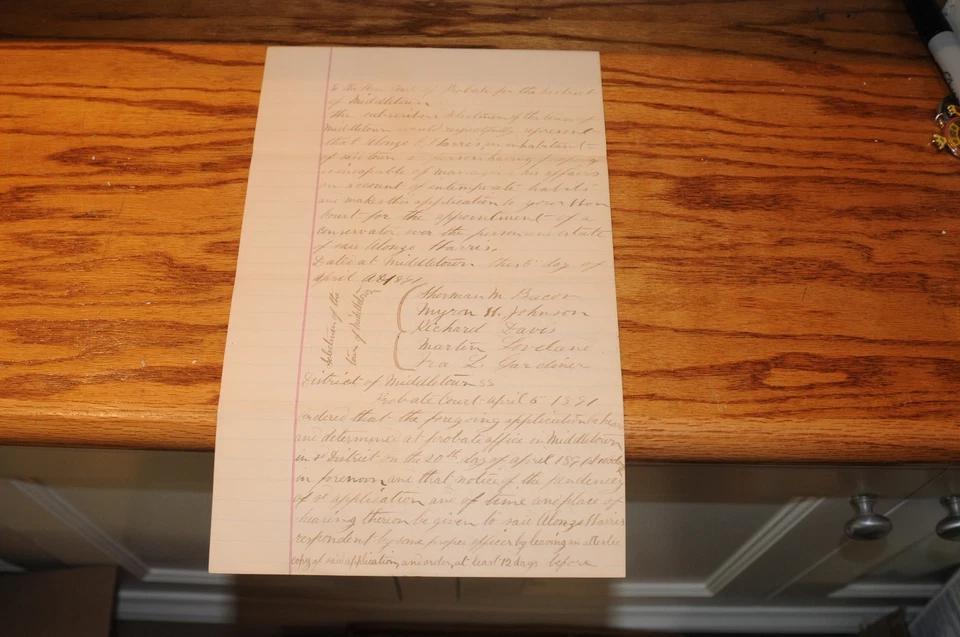 To the Hon. Court of Probate for the district
of Middletown.
The subscribers Selectmen of the town of
Middletown would respectfully represent
that Alonzo Harris, an inhabitant
of said town is a person having property
is incapable of managing his affairs
on account of intemperate habits
and makes this application to your Hon
Court for the appointment of a
conservator over the person and estate
of said Alonzo Harris.
Dated at Middletown this 5 day of
april AD 1891
Selectmen of the
town of Middletown
Sherman M. Bacon
Myron H. Johnson
Richard Davis
Martin Loveland
Ira L. Gardiner
District of Middletown ss
Probate Court april 5 1891
ordered that the foregoing application be heard
and determined at probate office in Middletown
in sd District on the 20th day of april 1891 at
in forenoon and that notice of the pendency
of sd application and of time and place of
hearing thereon be given to said Alonzo Harris
respondent by some proper officer by leaving an attested
copy of said application, and order, at least 12 days before